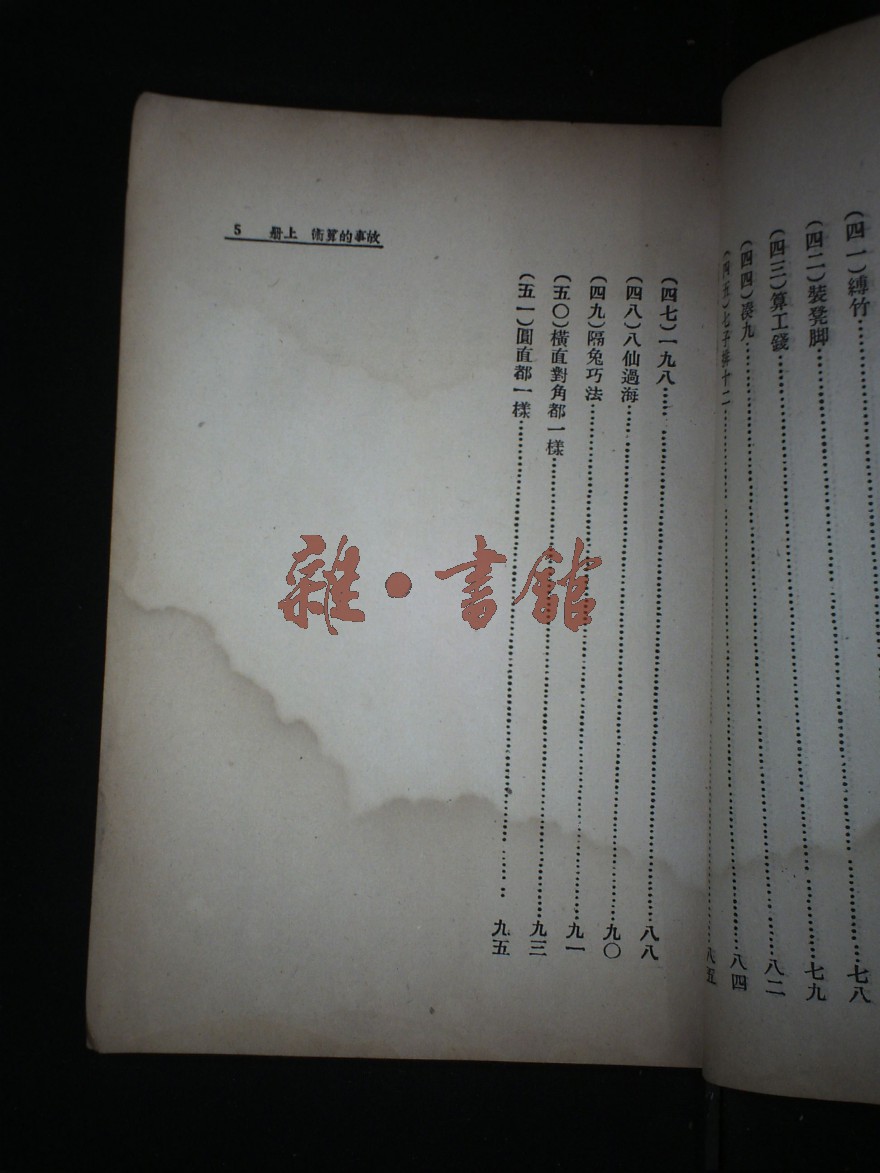 (四一)縛竹……七八
(四二)裝凳脚……七九
(四三)算工錢……八二
(四四)湊九……八四
(四五)七子 十二……八五
故事的算術 上册 5
(四七)一九八……八八
(四八)八仙過海……九〇
(四九)隔兔巧法……九一
(五〇)橫直對角都一樣……九三
(五一)圓直都一樣……九五
雜·書館